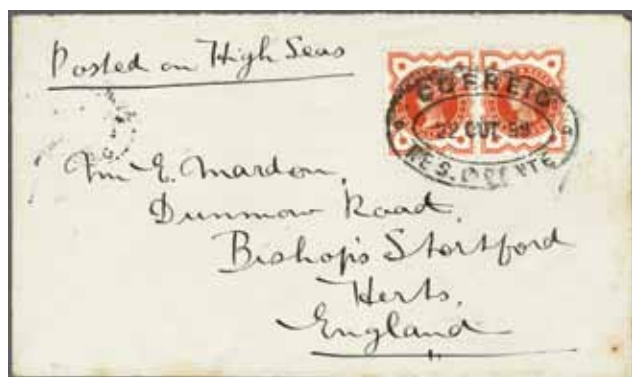 Posted on High Seas
CORREIO
22 OUT 99
DE S. VICENTE
Wm E. Mardon,
Dunmow Road,
Bishop's Stortford
Herts,
England